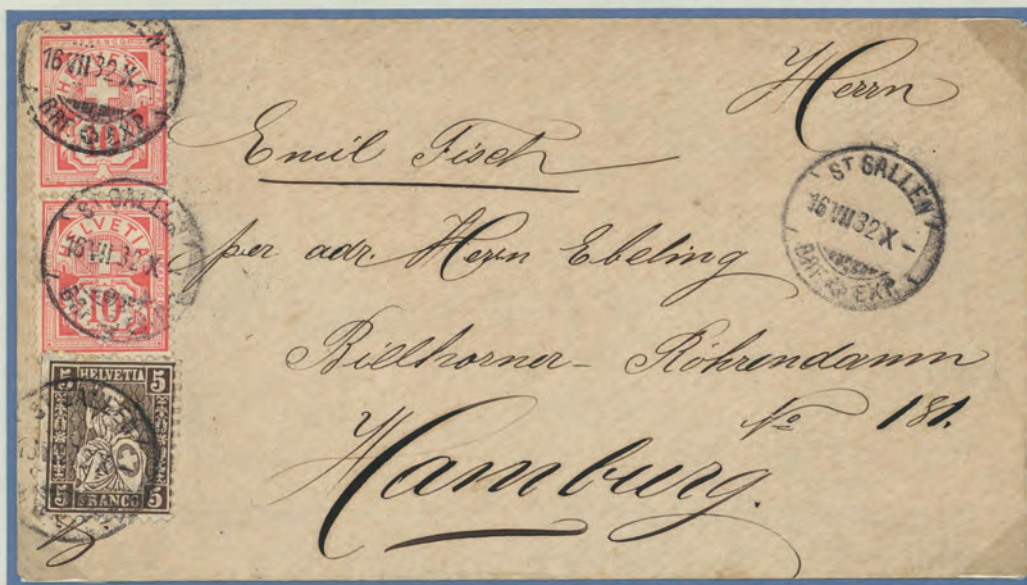 Herrn
Emil Fisch
per adr. Herrn Ebeling
Billhorner- Röhrendamm
No 181.
Hamburg.
ST GALLEN
16 VII 82 X -
BRF. EXP.
FRANCO
HELVETIA
10
ST GALLEN
16 VII 82 X -
BRF. EXP.
HELVETIA
10
ST GALLEN
16 VII 82 X
5 HELVETIA 5
5 FRANCO 5